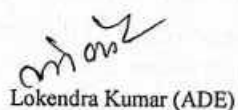 Lokendra Kumar (ADE)